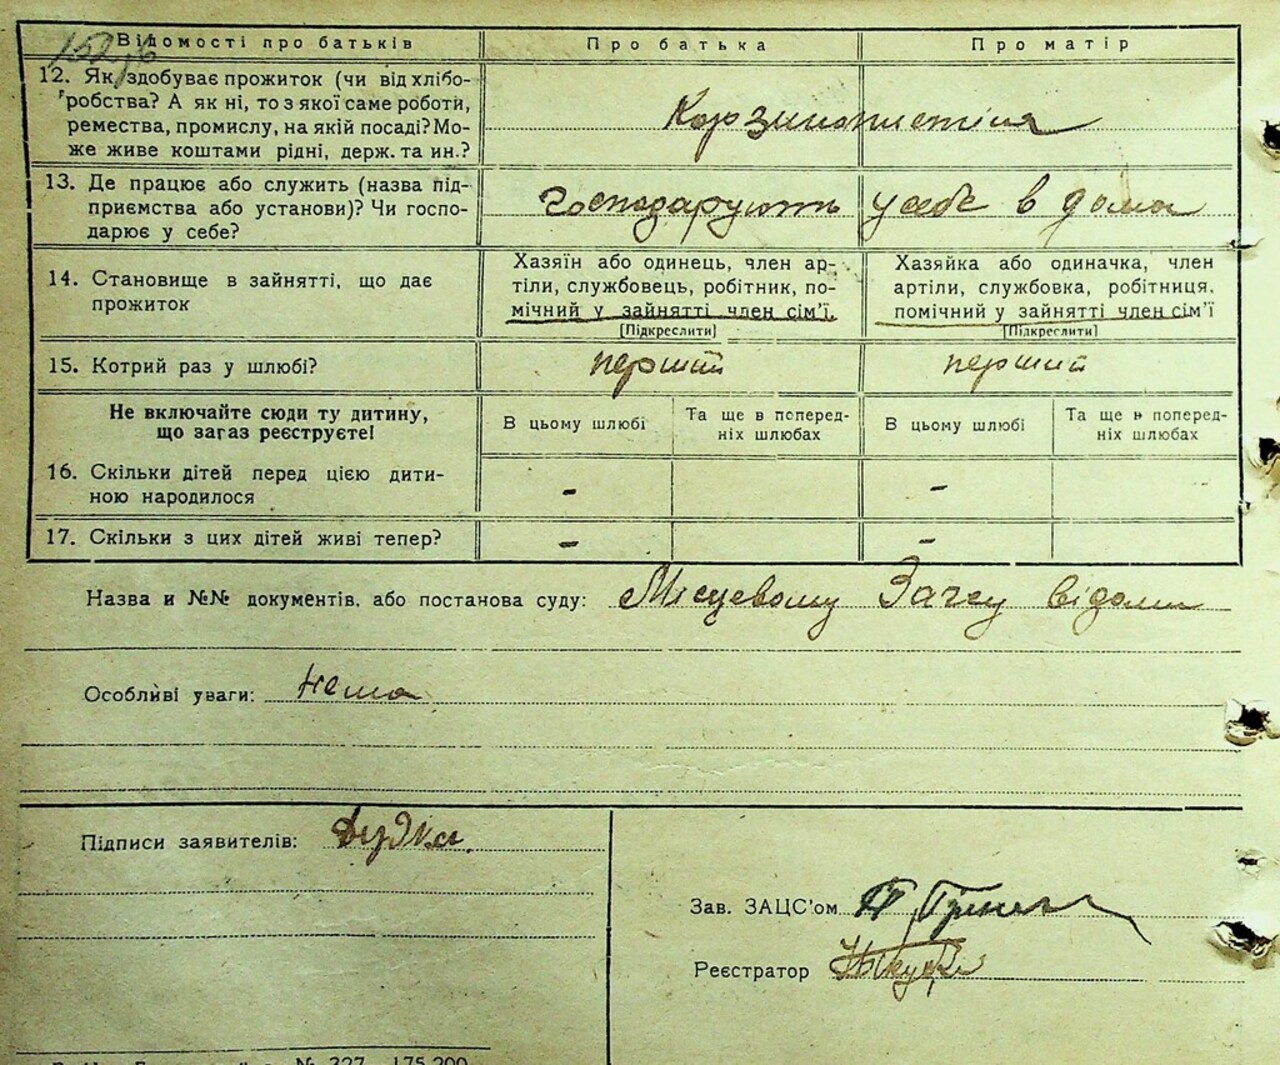 Відомості про батьків
Про батька
Про матір
12. Як здобуває прожиток (чи від хлібо-
робства? А як ні, то з якої саме роботи,
ремества, промислу, на якій посаді? Мо-
же живе коштами рідні, держ. та ин.?
13. Де працює або служить (назва під-
приємства або установи)? Чи госпо-
дарює у себе?
Господарують у себе в дома
14. Становище в зайнятті, що дає
прожиток
Хазяїн або одинець, член ар-
тіли, службовець, робітник, по-
мічний у зайнятті член сім'ї.
[Підкреслити]
Хазяйка або одиначка, член
артіли, службовка, робітниця,
помічний у зайнятті член сім'ї
[Підкреслити]
15. Котрий раз у шлюбі?
перший
перший
Не включайте сюди ту дитину,
що загаз реєструєте!
В цьому шлюбі
Та ще в поперед-
ніх шлюбах
В цьому шлюбі
Та ще в поперед-
ніх шлюбах
16. Скільки дітей перед цією дити-
ною народилося
-
-
17. Скільки з цих дітей живі тепер?
-
-
Назва и №№ документів. або постанова суду: Місцевому Загсу відомі
Особливі уваги: нема
Підписи заявителів: Дудка
Зав. ЗАЦС'ом
Реєстратор
№ 327 175.200